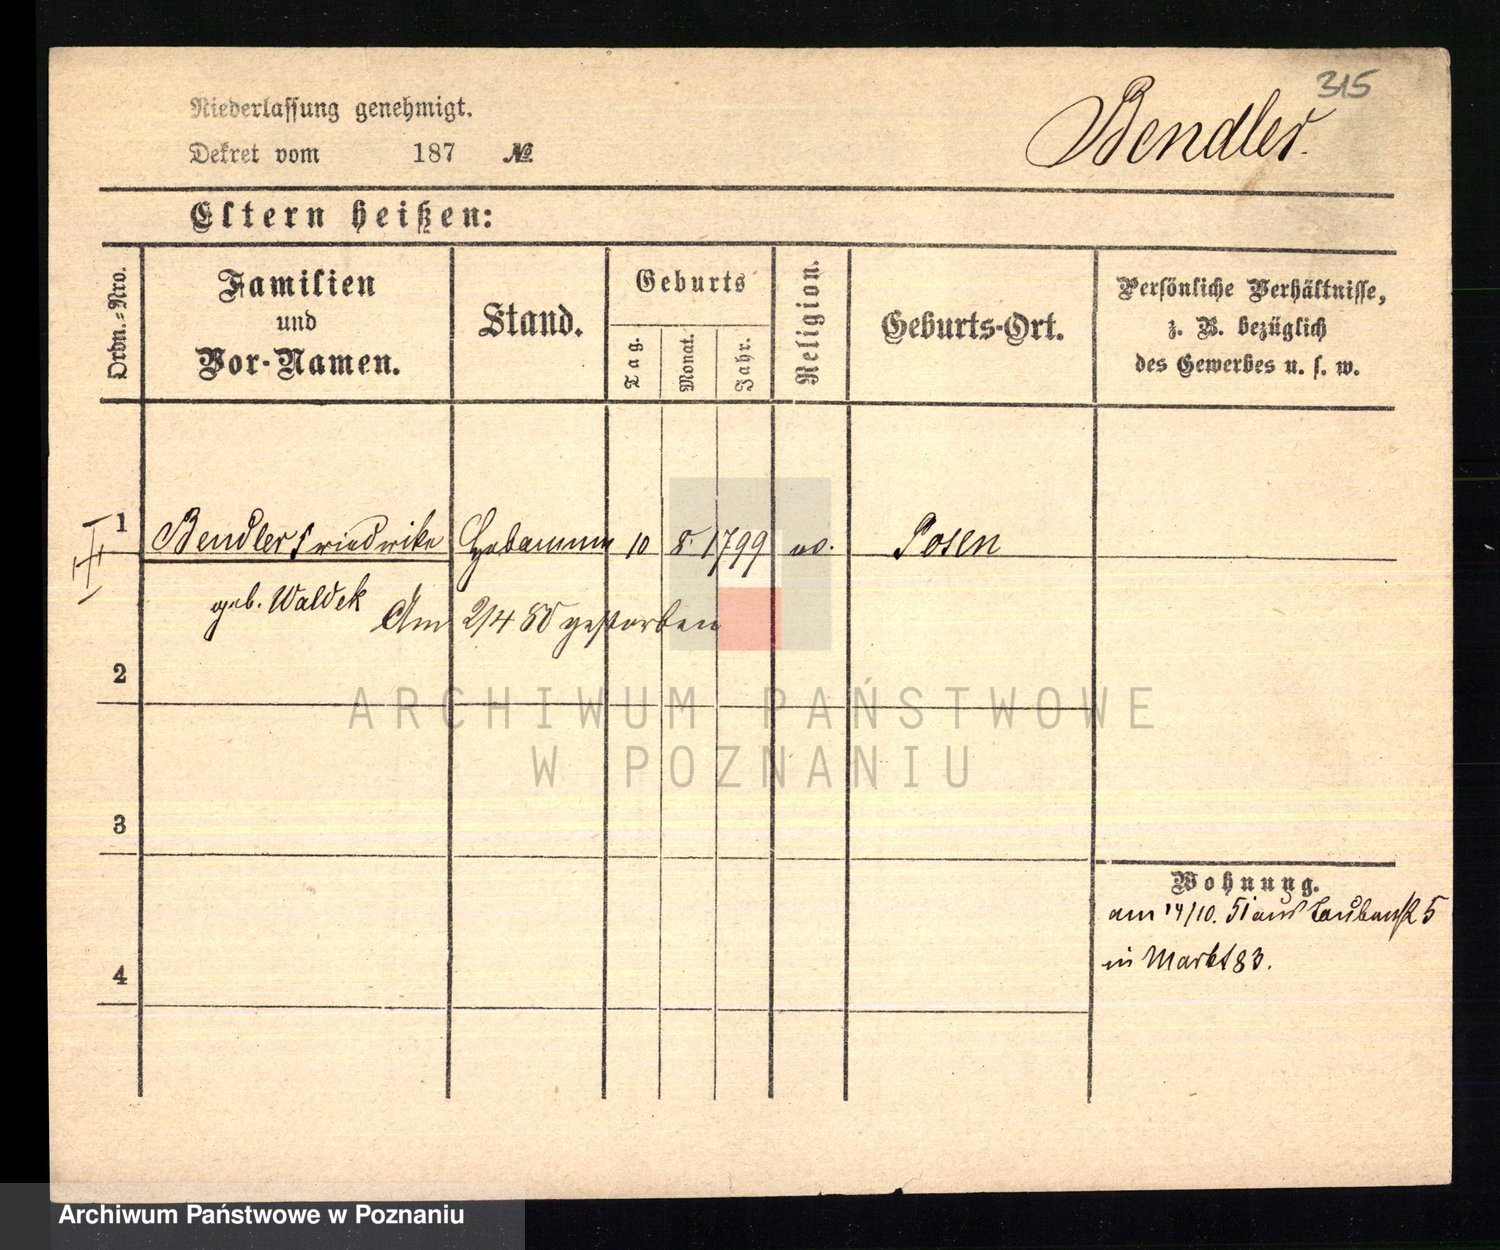 315
Niederlassung genehmigt.
Bendler.
Dekret vom 187 №
Eltern heißen:
Ordn.-Nro.
Familien
und
Vor-Namen.
Stand.
Geburts
Tag.
Monat.
Jahr.
Religion.
Geburts-Ort.
Persönliche Verhältnisse,
z. B. bezüglich
des Gewerbes u. s. w.
1 Bendler Friedrike Hebamme 10 8. 1799 ev. Posen
geb. Waldek
Am 2/4 80 gestorben
2
3
4
Wohnung.
am 14/10. 51 aus 5
in Markt 83.
ARCHIWUM PAŃSTWOWE
W POZNANIU
Archiwum Państwowe w Poznaniu